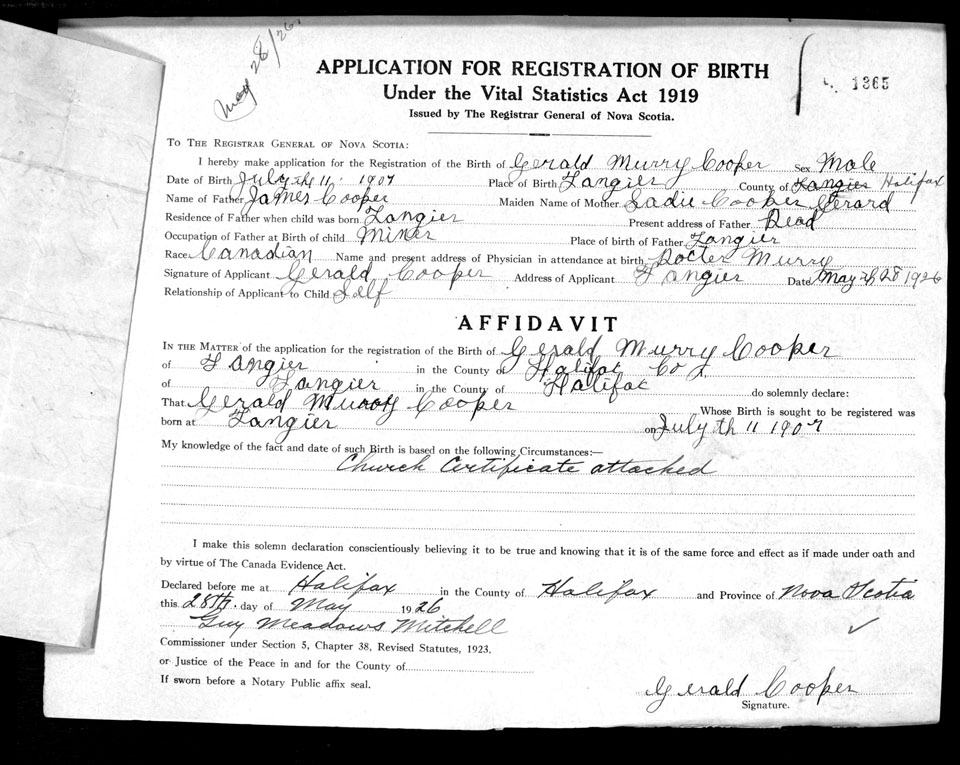 May 28/26
1365
APPLICATION FOR REGISTRATION OF BIRTH
Under the Vital Statistics Act 1919
Issued by The Registrar General of Nova Scotia.
To The Registrar General of Nova Scotia:
I hereby make application for the Registration of the Birth of Gerald Murry Cooper Sex Male
Date of Birth July th 11 1907 Place of Birth Tangier County of Tangier Halifax
Name of Father James Cooper Maiden Name of Mother Sadie Cooper Gerard
Residence of Father when child was born Tangier Present address of Father Dead
Occupation of Father at Birth of child Miner Place of birth of Father Tangier
Race Canadian Name and present address of Physician in attendance at birth Docter Murry
Signature of Applicant Gerald Cooper Address of Applicant Tangier Date May 28 1926
Relationship of Applicant to Child Self
AFFIDAVIT
In the Matter of the application for the registration of the Birth of Gerald Murry Cooper
of Tangier in the County of Halifax Co
of Tangier in the County of Halifax do solemnly declare:
That Gerald Murry Cooper Whose Birth is sought to be registered was
born at Tangier on July th 11 1907
My knowledge of the fact and date of such Birth is based on the following Circumstances:—
Church Certificate attached
I make this solemn declaration conscientiously believing it to be true and knowing that it is of the same force and effect as if made under oath and
by virtue of The Canada Evidence Act.
Declared before me at Halifax in the County of Halifax and Province of Nova Scotia
this 28th. day of May 1926
Guy Meadows Mitchell
Commissioner under Section 5, Chapter 38, Revised Statutes, 1923,
or Justice of the Peace in and for the County of
If sworn before a Notary Public affix seal.
Gerald Cooper
Signature.